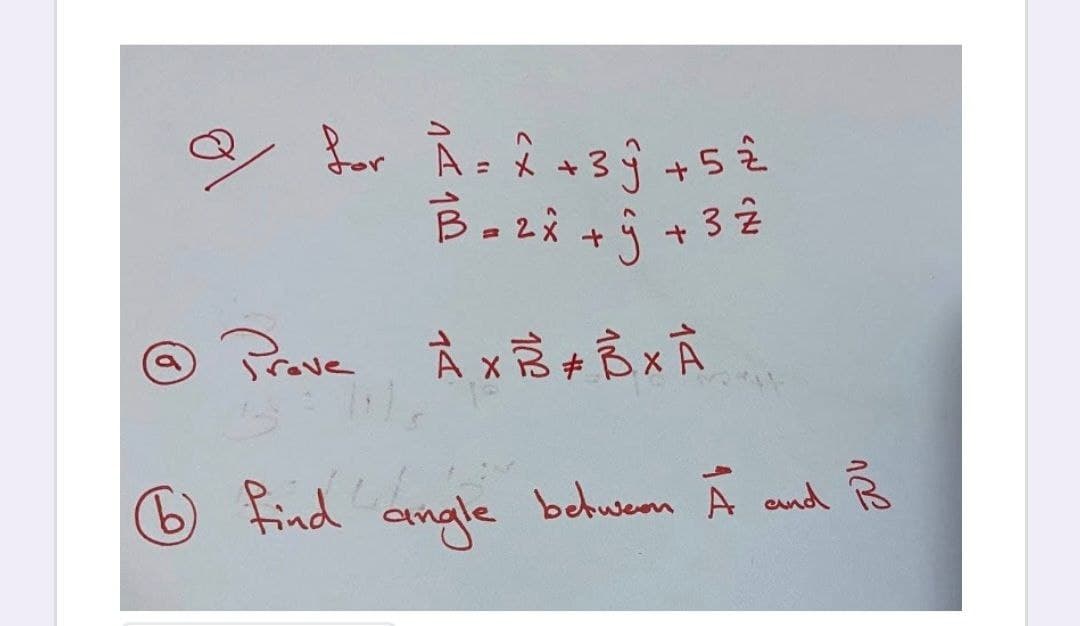 Q/ for A⃗ = x̂ + 3ŷ + 5ẑ
B⃗ = 2x̂ + ŷ + 3ẑ
ⓐ Prove A⃗ × B⃗ ≠ B⃗ × A⃗
ⓑ find angle between A⃗ and B⃗